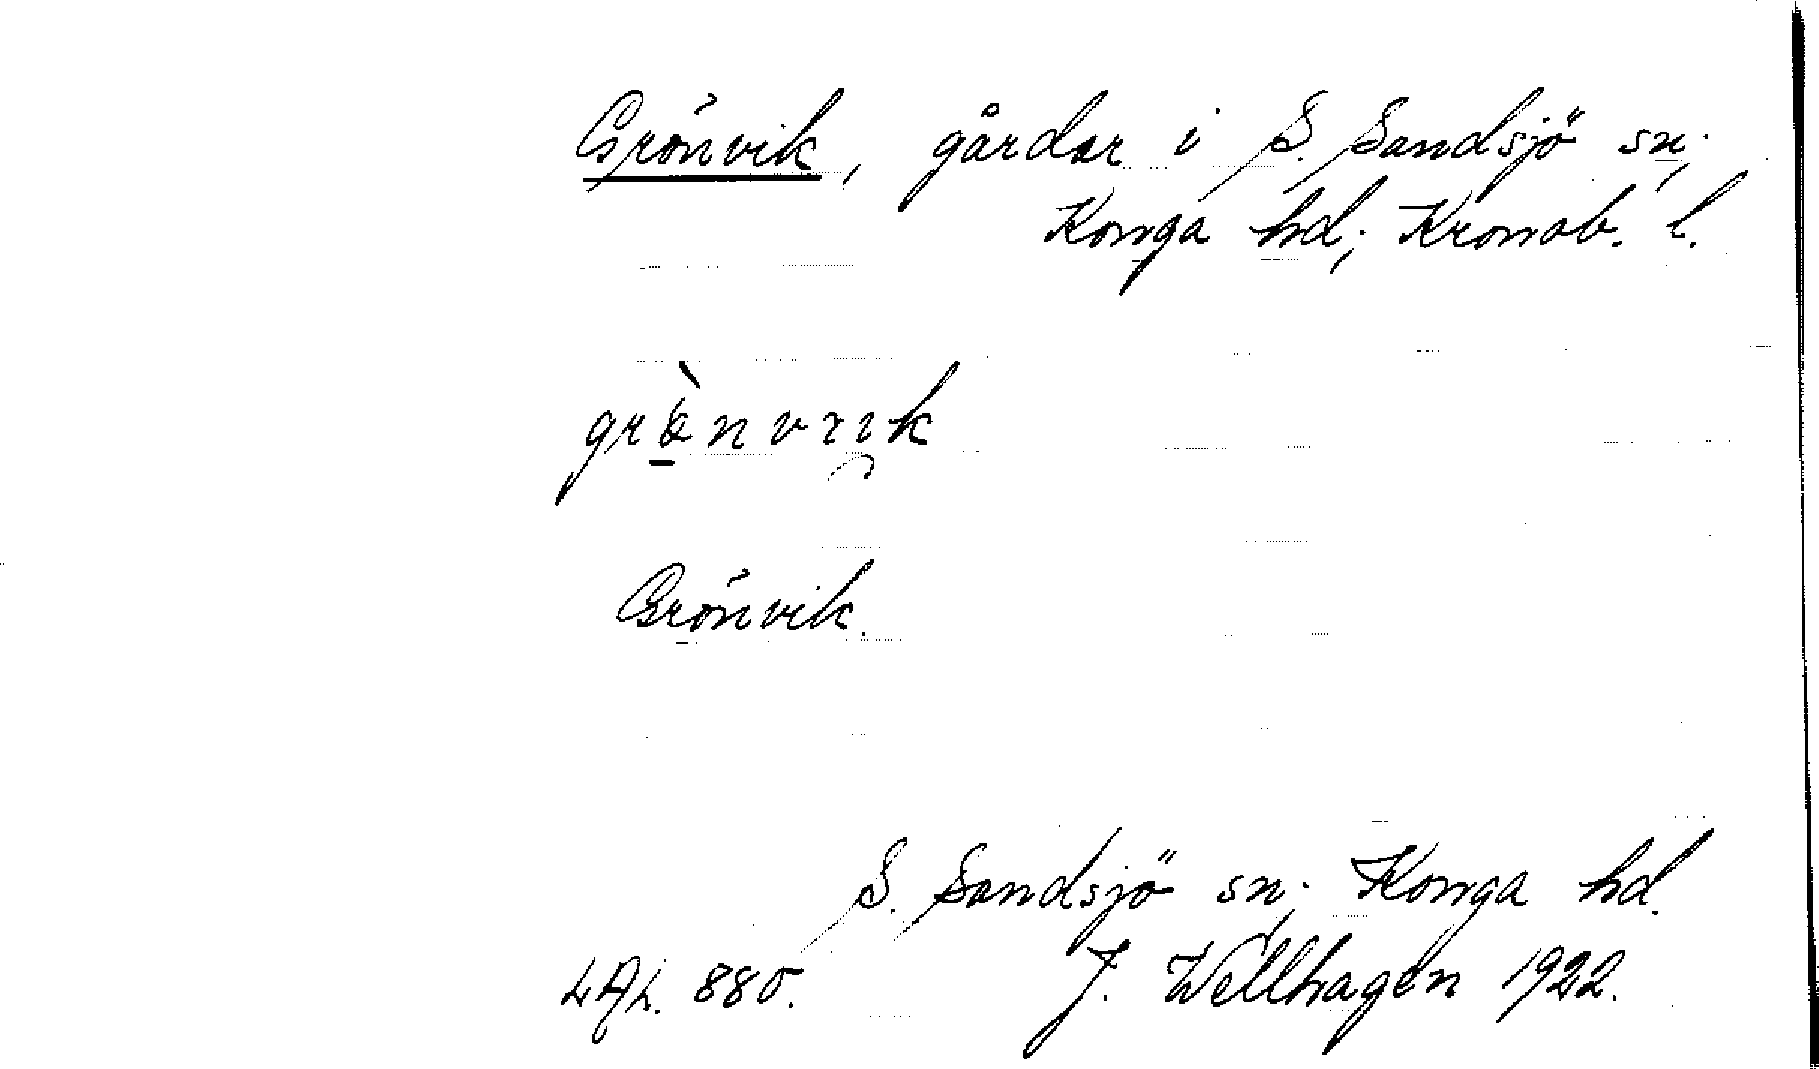 Grönvik, gårdar i S. Sandsjö sn;
Konga hd; Kronob. l.
grònvıık
Grönvik.
S. Sandsjö sn; Konga hd.
LAL. 880. J. Wellhagen 1922.